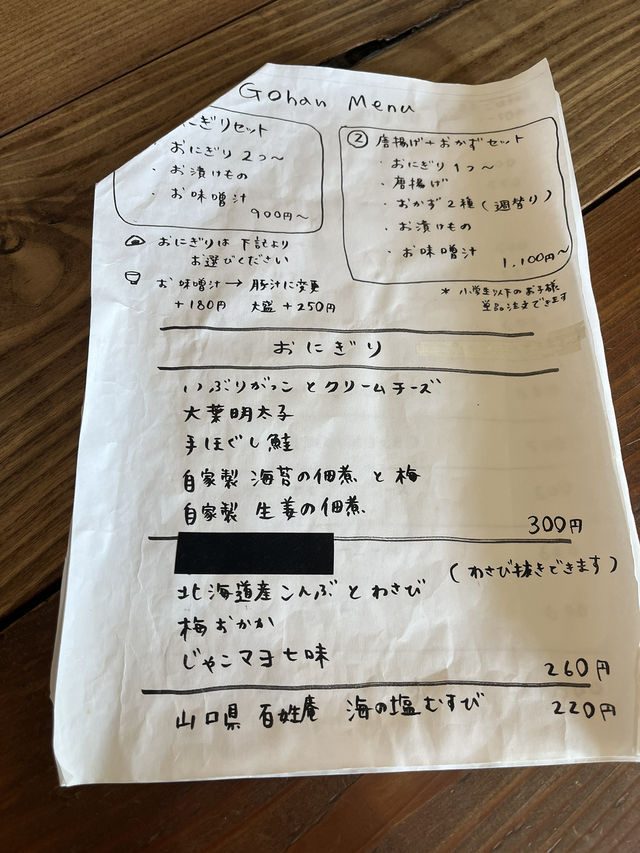 Gohan Menu
にぎりセット
・おにぎり 2つ〜
・お漬けもの
・お味噌汁
900円〜
② 唐揚げ+おかずセット
・おにぎり1つ〜
・唐揚げ
・おかず2種(週替り)
・お漬けもの
・お味噌汁
1,100円〜
おにぎりは 下記より
お選びください
お味噌汁→豚汁に変更
+180円 大盛+250円
* 小学生以下のお子様
単品注文できます
おにぎり
いぶりがっこ と クリームチーズ
大葉明太子
手ほぐし鮭
自家製 海苔の佃煮 と 梅
自家製 生姜の佃煮
300円
北海道産こんぶ と わさび
(わさび抜きできます)
梅おかか
じゃこマヨ七味
260円
山口県 百姓庵 海の塩むすび 220円